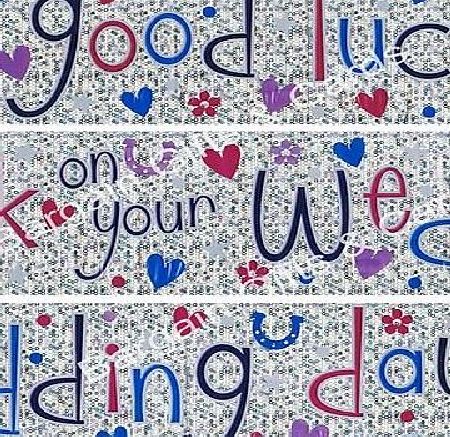 good luc
k on your We
dding day